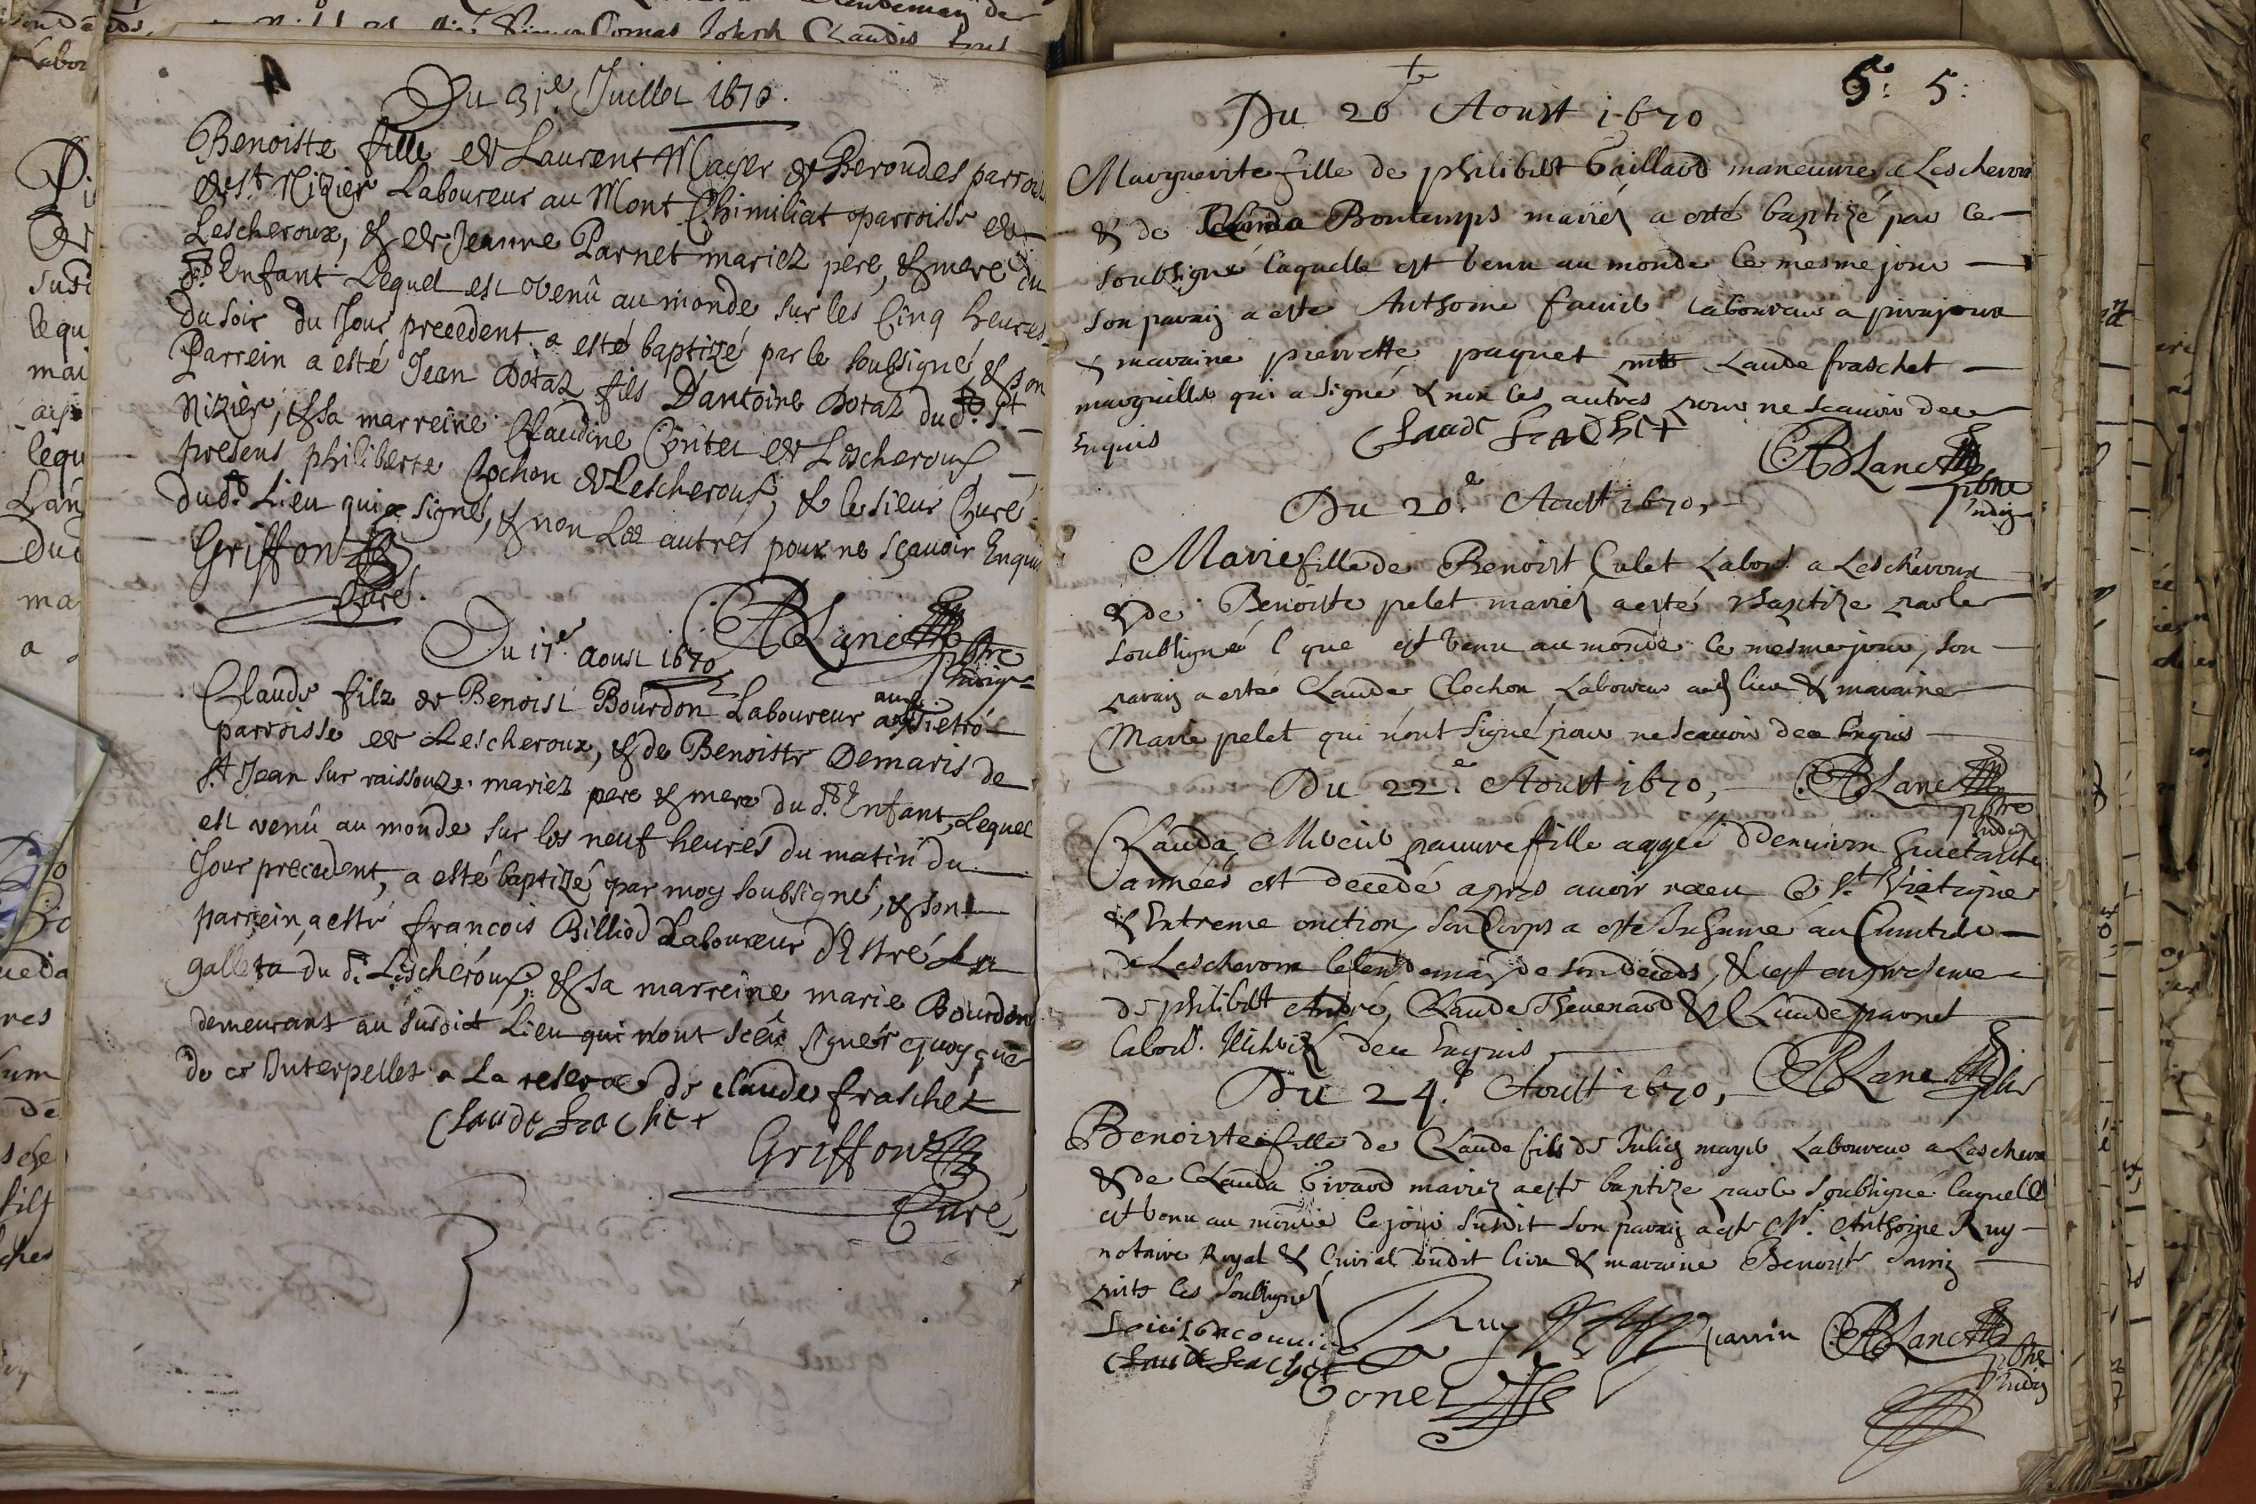 Du 31e Juillet 1670.
Benoiste fille de Laurent Mayer de Beroudes parroisse
de St Nizier Laboureur au Mont Chimiliat parroisse de
Lescheroux, & de Jeanne Parnet mariez pere, & mere du
d. Enfant Lequel est venû au monde sur les Cinq heures
du soir du Jour precedent a esté baptizé par le soubsigné, & son
Parrein a esté Jean Dotaz fils D'antoine Dotaz dud. St
Nizier, & sa marreine Claudine Contet de Lescheroux
presens philiberte Clochon de Lescheroux, & le sieur Curé
dud. Lieu qui a signé, & non Les autres pour ne sçauoir Enquis
Griffon
Curé.
Blanc
pbre
Indigne
Du 17e. aoust 1670
Claude filz de Benoist Bourdon Laboureur au
parroisse de Lescheroux, & de Benoiste Demaris de
St Jean sur raissouze mariez pere & mere du d. Enfant, Lequel
est venû au monde sur les neuf heures du matin du
Jour precedent, a esté baptizé par moy soubsigné, & son
parrein, a esté francois Billiod Laboureur
du d. Lescheroux, & sa marreine marie Bourdon
demeurant au susdict Lieu qui n'ont sceu signer quoy que
de ce Interpellez a La reserve de claude fraschet
Claude frachet
Griffon
Curé
5. 5.
Du 20 Aoust 1670
Marguerite fille de philibert Gaillard maneuure a Lescheroux
& de Clauda Bontemps mariéz a esté baptizé par le
soubsigné laquelle est venu au monde le mesme jour
son parain a este Anthoine fauier laboureur a
& maraine pierrette paquet Claude fraschet
marguillier qui a signé & non les autres pour ne scauoir de ce
Enquis
Claude frachet
Blanc
pbre
indig
Du 20e Aoust 1670,
Marie fille de Benoist Culet Labour. a Lescheroux
& de Benoiste pelet mariez a esté baptizé par le
soubsigné l que est venu au monde le mesme jour, son
parain a esté Claude Clochon Laboureur aud lieu & maraine
Marie pelet qui n'ont signé pour ne scauoir de ce Enquis
Du 22e Aoust 1670,
Blanc
pbre
indig
Clauda pauure fille aagée d'enuiron
années est decedé apres auoir receu le St Viatique
& Extreme onction, son Corps a esté Inhumé au Cimetiere
de Lescheroux le lendemain de son deceds, & c'est en presence
de philibert André, Claude Theuenard & Claude parnet
labour. de ce Enquis
Du 24e Aoust 1670,
Blanc
pbre
Benoiste fille de Claude fils de Julien mayer Laboureur a Lescheroux
& de Clauda Girard mariez a este baptize par le soubsigné laquelle
est venu au monde le jour susdit son parain a este Mr. Anthoine Ruy
notaire Royal & Curial dudit lieu & maraine Benoiste
les soubsignés
Claude frachet
Ruy parrin
Gonet
Blanc
pbre
indig